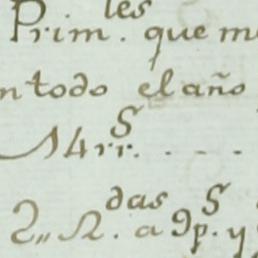 Prim.les que m
n todo el año
14 rr.s . . .
2,, R.das a 9 p.s y